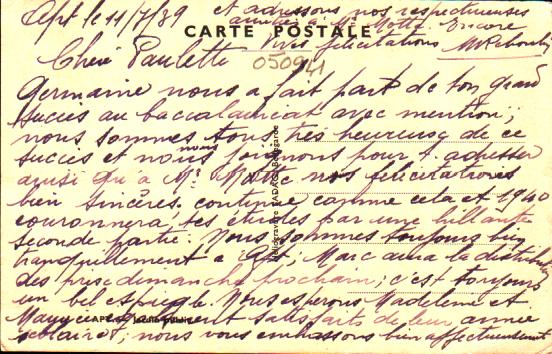 Apt le 11/7/39 et adressons nos respectueuses
amitiés à Mr Motte. Encore
CARTE POSTALE
vives félicitations MReboul
050941
Chère Paulette
Germaine nous a fait part de ton grand
succès au baccalauréat avec mention;
nous sommes tous très heureux de ce
succès et nous nous joignons pour t'adresser
ainsi qu'à Mr Motte nos félicitations
bien sincères, continue comme cela et 1940
couronnera tes études par une brillante
seconde partie. Nous sommes toujours bien
tranquillement à Apt; Marc aura la distribution
des prix dimanche prochain; c'est toujours
un bel espiègle. Nous espérons Madeleine et
Maurice également satisfaits de leur année
scolaire; nous vous embrassons bien affectueusement
Héliogravure